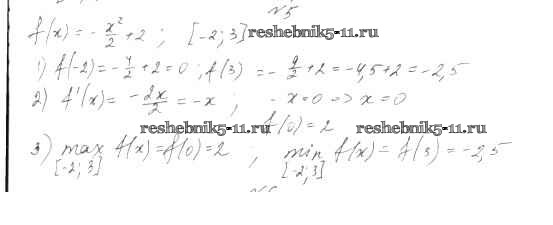 №5
f(x) = - x²/2 + 2 ; [-2; 3] reshebnik5-11.ru
1) f(-2) = - 4/2 + 2 = 0 ; f(3) = - 9/2 + 2 = -4,5 + 2 = -2,5
2) f'(x) = - 2x/2 = -x ; -x = 0 => x = 0
f(0) = 2
reshebnik5-11.ru reshebnik5-11.ru
3) max f(x) = f(0) = 2 ; min f(x) = f(3) = -2,5
[-2; 3] [-2; 3]